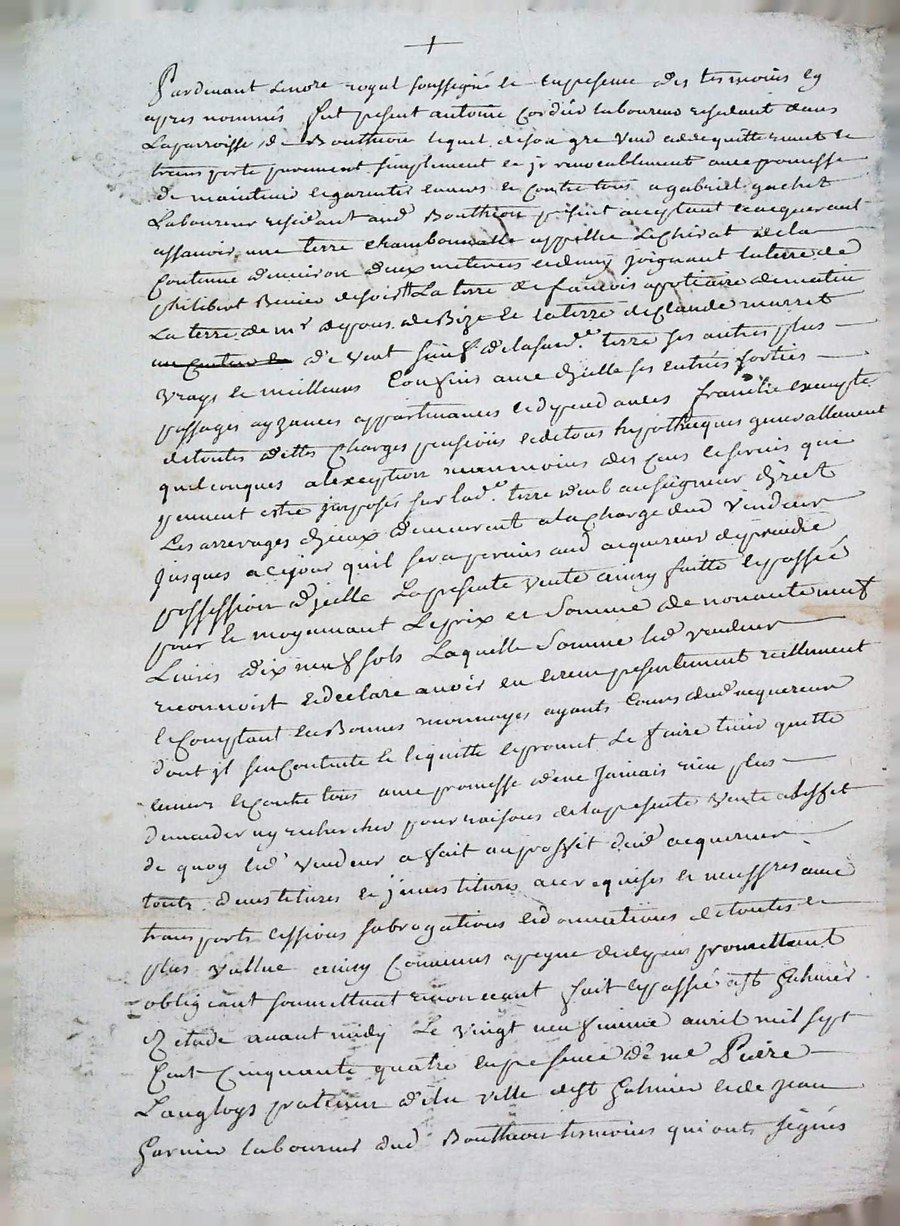 +
Pardevant Lenore royal soussigné et en presence des tesmoins cy
apres nommés fut present antoine Cordier laboureur residant dans
La parroisse de Bouthion lequel de son gre vend cedde quitte remet et
transporte purement simplement et jrrevocablement avec promesse
de maintenir et garentir envers et contre tous a gabriel gachet
Laboureur residant aud Bouthion present acceptant et acquerant
assavoir une terre chambonnalle appellee Le Chirat de la
Contenue denviron deux meterees et demy joignant la terre de
philibert Benier de soir la terre de francois apotiaire de matin
La terre de mr de pons de Bize et la terre de Claude murret
de vent sauf de lasusde terre ses autres plus
vrays et meilleurs Confins avec dicelle ses entrées sorties
passages ayzances appartenances et dependances franche exempte
de toutes dettes Charges pensions et de tous hypotheques generallement
quelconques a lexception neanmoins des cens et servis qui
peuvent estre jmposés sur lade terre deub au seigneur direct
Les arrerages diceux demeurent a la charge dud vendeur
jusques a cejour quil sera permis aud acquereur de prendre
possession dicelle La presente vente ainsy faitte et passée
pour et moyennant Le prix et Somme de nonante neuf
Livres dix neuf sols Laquelle Somme led vendeur
reconnoist et declare avoir eu et receu presentement reellement
et Comptant en Bonnes monnoyes ayants Cours dud acquereur
dont jl se Contente et le quitte et promet Le faire tenir quitte
envers et Contre tous avec promesse den jamais rien plus
demander ny rechercher pour raisons de la presente vente a leffet
de quoy led vendeur a fait au proffit dud acquereur
touts devestitures et jnvestitures a ce requises et necessres avec
transports cessions subrogations et donnations de toutes
plus vallue ainsy Convenus a peyne de depens promettant
obligeant soumettant renonceant fait et passé a st galmier
Etude avant midy Le vingt neufvieme avril mil sept
Cent Cinquante quatre en presence de me Pierre
Langloys praticien de la ville de st galmier et de jean
garnier laboureur dud Bouthion tesmoins qui onts signés